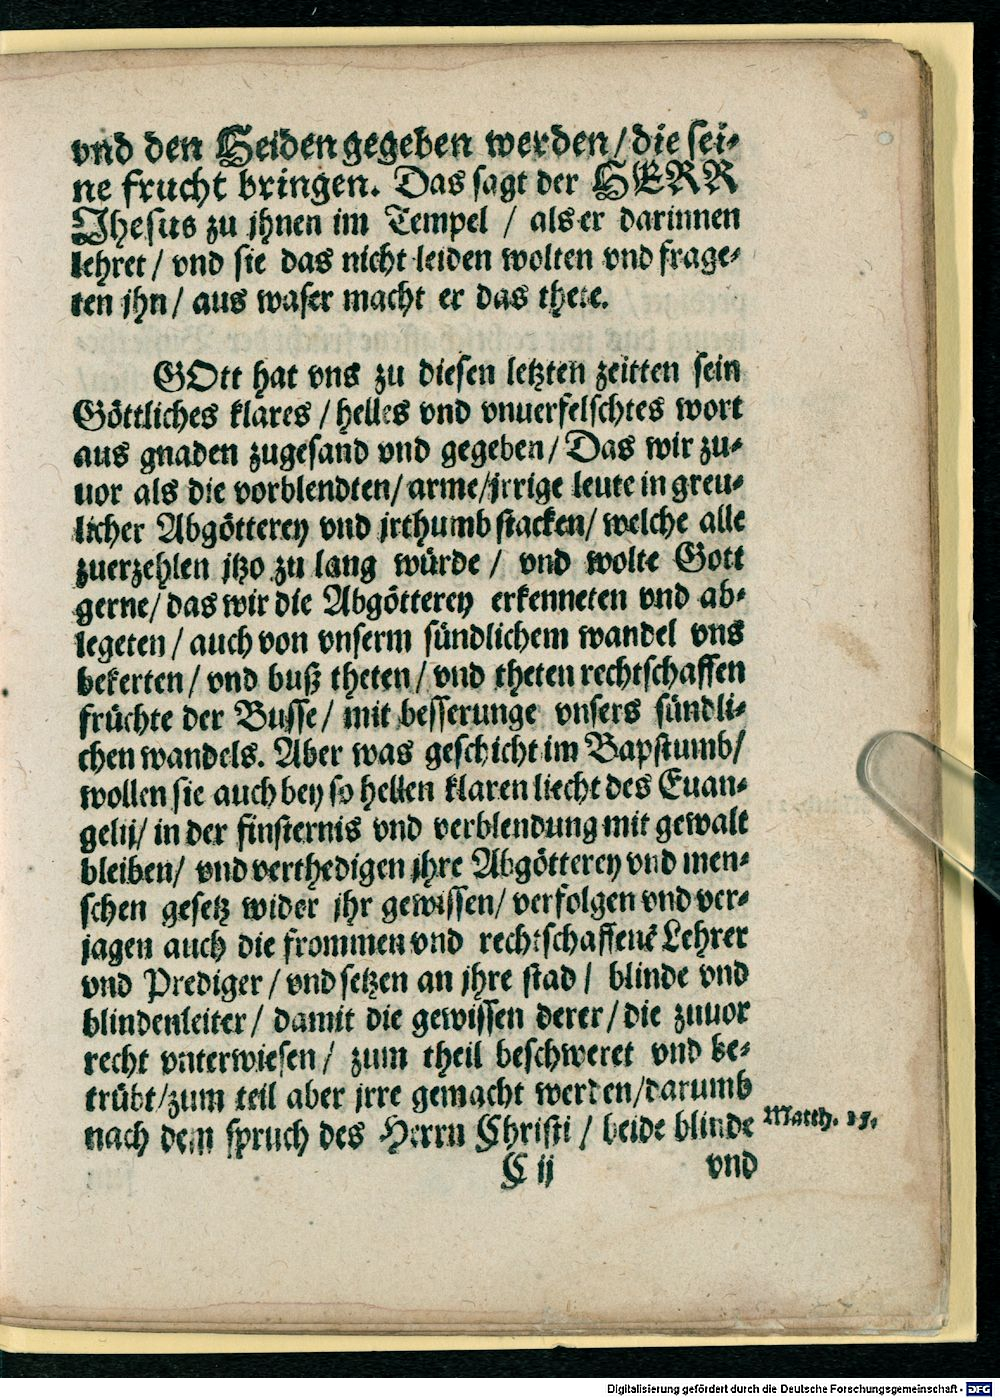 vnd den Heiden gegeben werden / die sei-
ne frucht bringen. Das sagt der HERR
Jhesus zu jhnen im Tempel / als er darinnen
lehret / vnd sie das nicht leiden wolten vnd frage-
ten jhn / aus waser macht er das thete.
GOtt hat vns zu diesen letzten zeitten sein
Göttliches klares / helles vnd vnuerfelschtes wort
aus gnaden zugesand vnd gegeben / Das wir zu-
uor als die vorblendten / arme / jrrige leute in greu-
licher Abgötterey vnd jrthumb stacken / welche alle
zuerzehlen jtzo zu lang würde / vnd wolte Gott
gerne / das wir die Abgötterey erkenneten vnd ab-
legeten / auch von vnserm sündlichem wandel vns
bekerten / vnd buß theten / vnd theten rechtschaffen
früchte der Busse / mit besserunge vnsers sündli-
chen wandels. Aber was geschicht im Bapstumb /
wollen sie auch bey so hellen klaren liecht des Euan-
gelij / in der finsternis vnd verblendung mit gewalt
bleiben / vnd verthedigen jhre Abgötterey vnd men-
schen gesetz wider jhr gewissen / verfolgen vnd ver-
jagen auch die frommen vnd rechtschaffenẽ Lehrer
vnd Prediger / vnd setzen an jhre stad / blinde vnd
blindenleiter / damit die gewissen derer / die zuuor
recht vnterwiesen / zum theil beschweret vnd be-
trübt / zum teil aber jrre gemacht werden / darumb
nach dem spruch des Herrn Christi / beide blinde
Matth. 15.
C ij
vnd
Digitalisierung gefördert durch die Deutsche Forschungsgemeinschaft - DFG